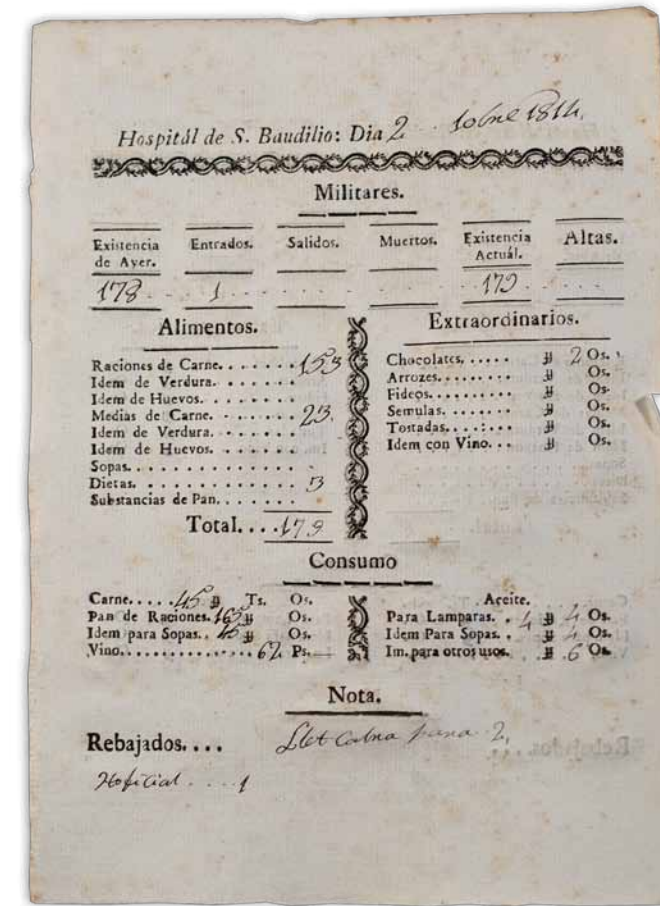 Hospitál de S. Baudilio: Dia 2 10bre 1814.
Militares.
Existencia de Ayer. Entrados. Salidos. Muertos. Existencia Actuál. Altas.
178 1 179
Alimentos.
Raciones de Carne. . . . . . . 153
Idem de Verdura. . . . . . .
Idem de Huevos. . . . . . .
Medias de Carne. . . . . . . . 23.
Idem de Verdura. . . . . . .
Idem de Huevos. . . . . . .
Sopas. . . . . . . . . . . . . .
Dietas. . . . . . . . . . . . . 3
Substancias de Pan. . . . . . .
Total. . . . 179
Extraordinarios.
Chocolates, . . . . . ℔ 2 Os.
Arrozes. . . . . . . . . ℔ Os.
Fideos. . . . . . . . . ℔ Os.
Semulas. . . . . . . . ℔ Os.
Tostadas. . . . : . . . ℔ Os.
Idem con Vino. . . ℔ Os.
Consumo
Carne. . . . . 45 ℔ Ts. Os.
Pan de Raciones. 163 ℔ Os.
Idem para Sopas. . 45 ℔ Os.
Vino. . . . . . . . . . . . . . . . 62 Ps.
Aceite.
Para Lamparas. . 4 ℔ 4 Os.
Idem Para Sopas. . ℔ 4 Os.
Im. para otros usos. ℔ 6 Os.
Nota.
Rebajados. . . . Llet para 2.
Hoficial . . . . 1